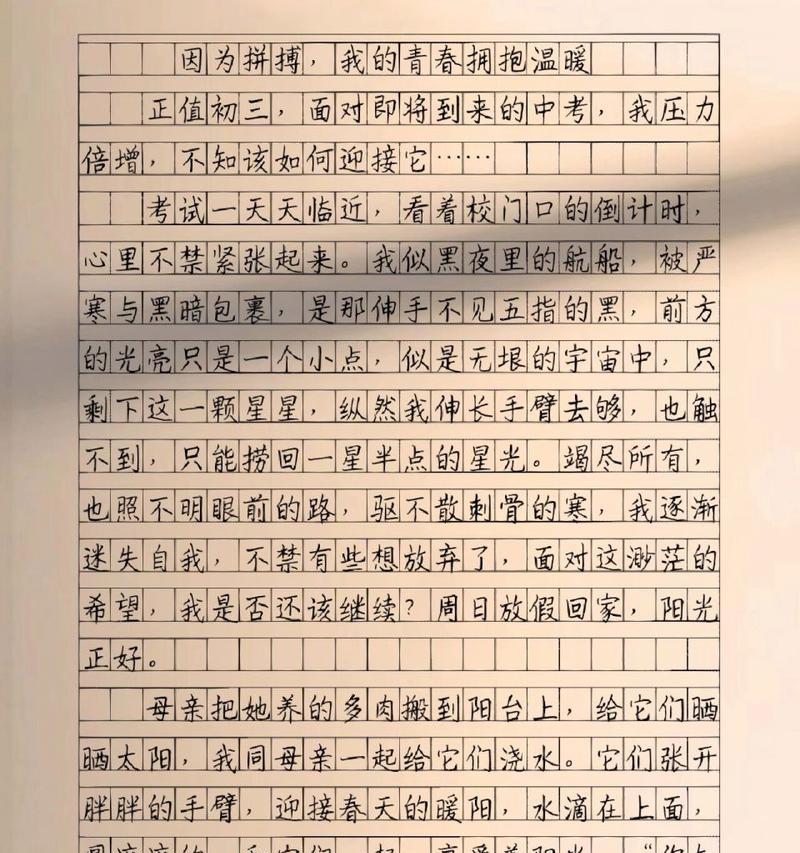 因为拼搏，我的青春拥抱温暖
正值初三，面对即将到来的中考，我压力
倍增，不知该如何迎接它……
考试一天天临近，看着校门口的倒计时，
心里不禁紧张起来。我似黑夜里的航船，被严
寒与黑暗包裹，是那伸手不见五指的黑，前方
的光亮只是一个小点，似是无垠的宇宙中，只
剩下这一颗星星，纵然我伸长手臂去够，也触
不到，只能捞回一星半点的星光。竭尽所有，
也照不明眼前的路，驱不散刺骨的寒，我逐渐
迷失自我，不禁有些想放弃了，面对这渺茫的
希望，我是否还该继续？周日放假回家，阳光
正好。
母亲把她养的多肉搬到阳台上，给它们晒
晒太阳，我同母亲一起给它们浇水。它们张开
胖胖的手臂，迎接春天的暖阳，水滴在上面，